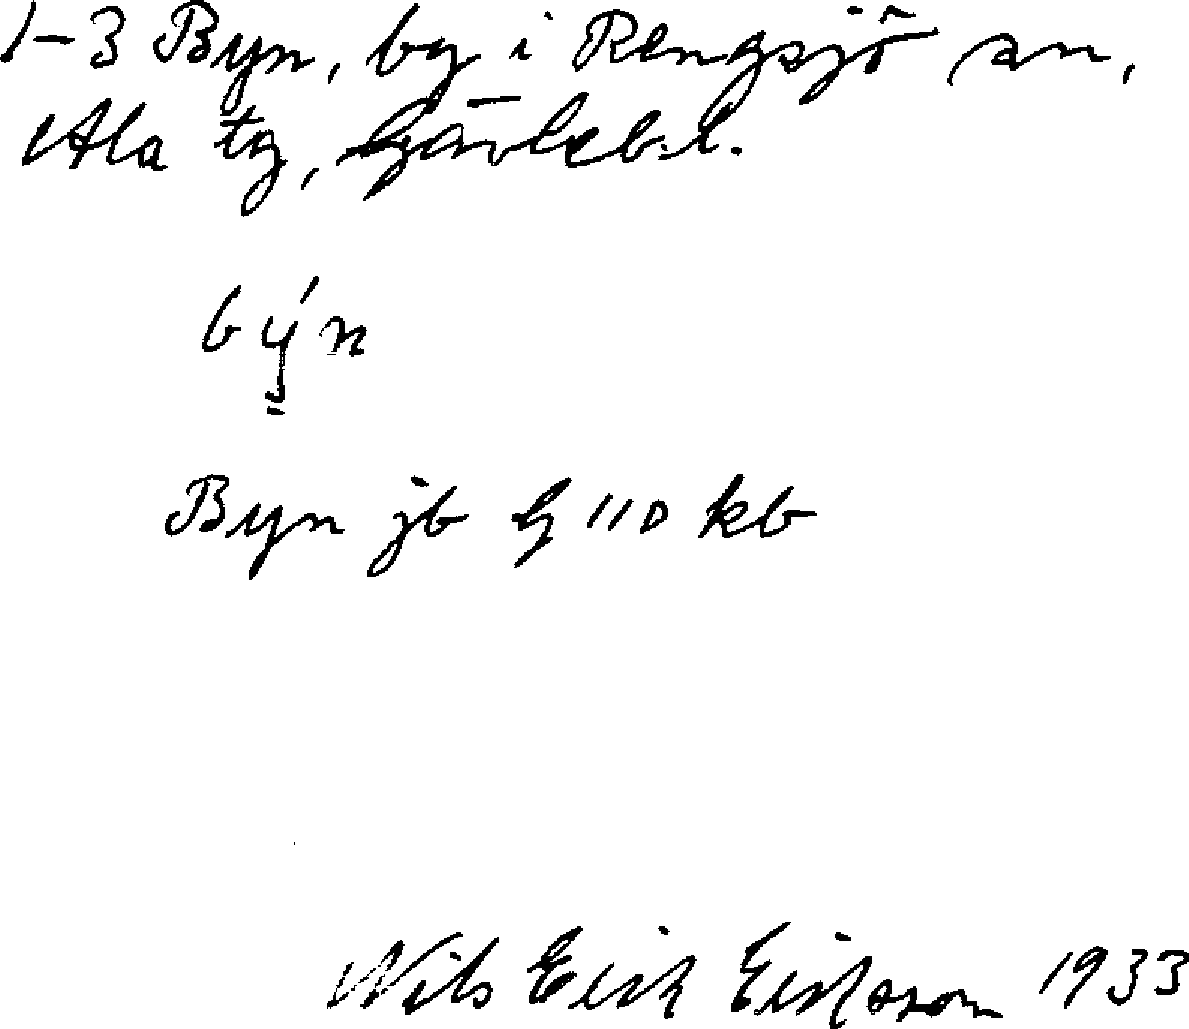 1-3 Byn, by i Rengsjö sn,
Ala tg, Gävleb. l.
býn
Byn jb G 110 kb
Nils Erik Eriksson 1933